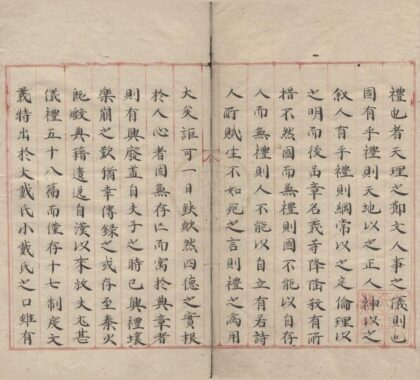 禮也者天理之節文人事之儀則也
國有乎禮則天地以之正人神以之
叙人育乎禮則綱常以之定倫理以
之明而後品章名義等降隆殺有所
措不然國而無禮則國不能以自存
人而無禮則人不能以自立有若詩
人所賦生不如死之言則禮之為用
大矣詎可一日缺歟然四德之實根
於人心者固無存亡而寓於典章者
則有興廢蓋自夫子之時已興禮壞
樂崩之歎猶幸傳錄之或存至秦火
旣𣤶典籍遺逸自漢以來放失尤甚
儀禮五十八篇而僅存十七制度文
義特出於大戴氏小戴氏之口雖有